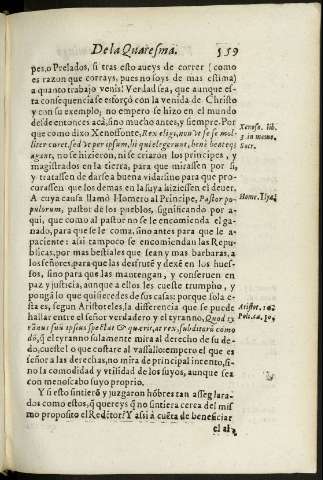 De la Quaresma. 559
pes, o Prelados, si tras esto aueys de correr (como
es razon que corrays, pues no soys de mas estima)
a quanto trabajo venis! Verdad sea, que aunque es-
ta consequencia se esforçò con la venida de Christo
y con su exemplo, no empero se hizo en el mundo
desde entonces acà, sino mucho antes, y siempre. Por
que como dixo Xenofonte, Rex eligi, non
liter curet, sed vt per ipsum, hi qui elegerunt, benè beateq́;
agant, no se hizieron, ni se criaron los principes, y
magistrados en la tierra, para que mirassen por si,
y tratassen de darse a buena vida: sino para que pro-
curassen que los demas en la suya hiziessen el deuer.
A cuya causa llamò Homero al Principe, Pastor po-
pulorum, pastor de los pueblos, significando por a-
qui, que como al pastor no se le encomienda el ga-
nado, para que se le coma, sino antes para que le a-
paciente: assi tampoco se encomiendan las Repu-
blicas, por mas bestiales que sean y mas barbaras, a
los señores, para que las desfrutē y dexē en los hues-
sos, sino para que las mantengan, y conseruen en
paz y justicia, aunque a ellos les cueste trumpho, y
ponga lo que quisieredes de sus casas: porque sola e-
sta es, segun Aristoteles, la diferencia que se puede
hallar entre el señor verdadero y el tyranno, Quod ty
rānus suū ipsus spectat & quærit, at rex, subditorū como
dō, q̄ el tyranno solamente mira al derecho de su de-
do, cueste lo que costare al vassallo: empero el que es
señor a las derechas, no mira de principal intento, si-
no la comodidad y vtilidad de los suyos, aunque sea
con menoscabo suyo proprio.
Y si esto sintierō y juzgaron hōbres tan asseglara-
dos como estos, q̄ quereys q̄ no sintiera cerca del mis
mo proposito el Redētor? Y assi à cuēta de beneficiar
el al-
Xenofo. lib.
3. in memo.
Socr.
Home. Ilya.
Aristot.
Poli.